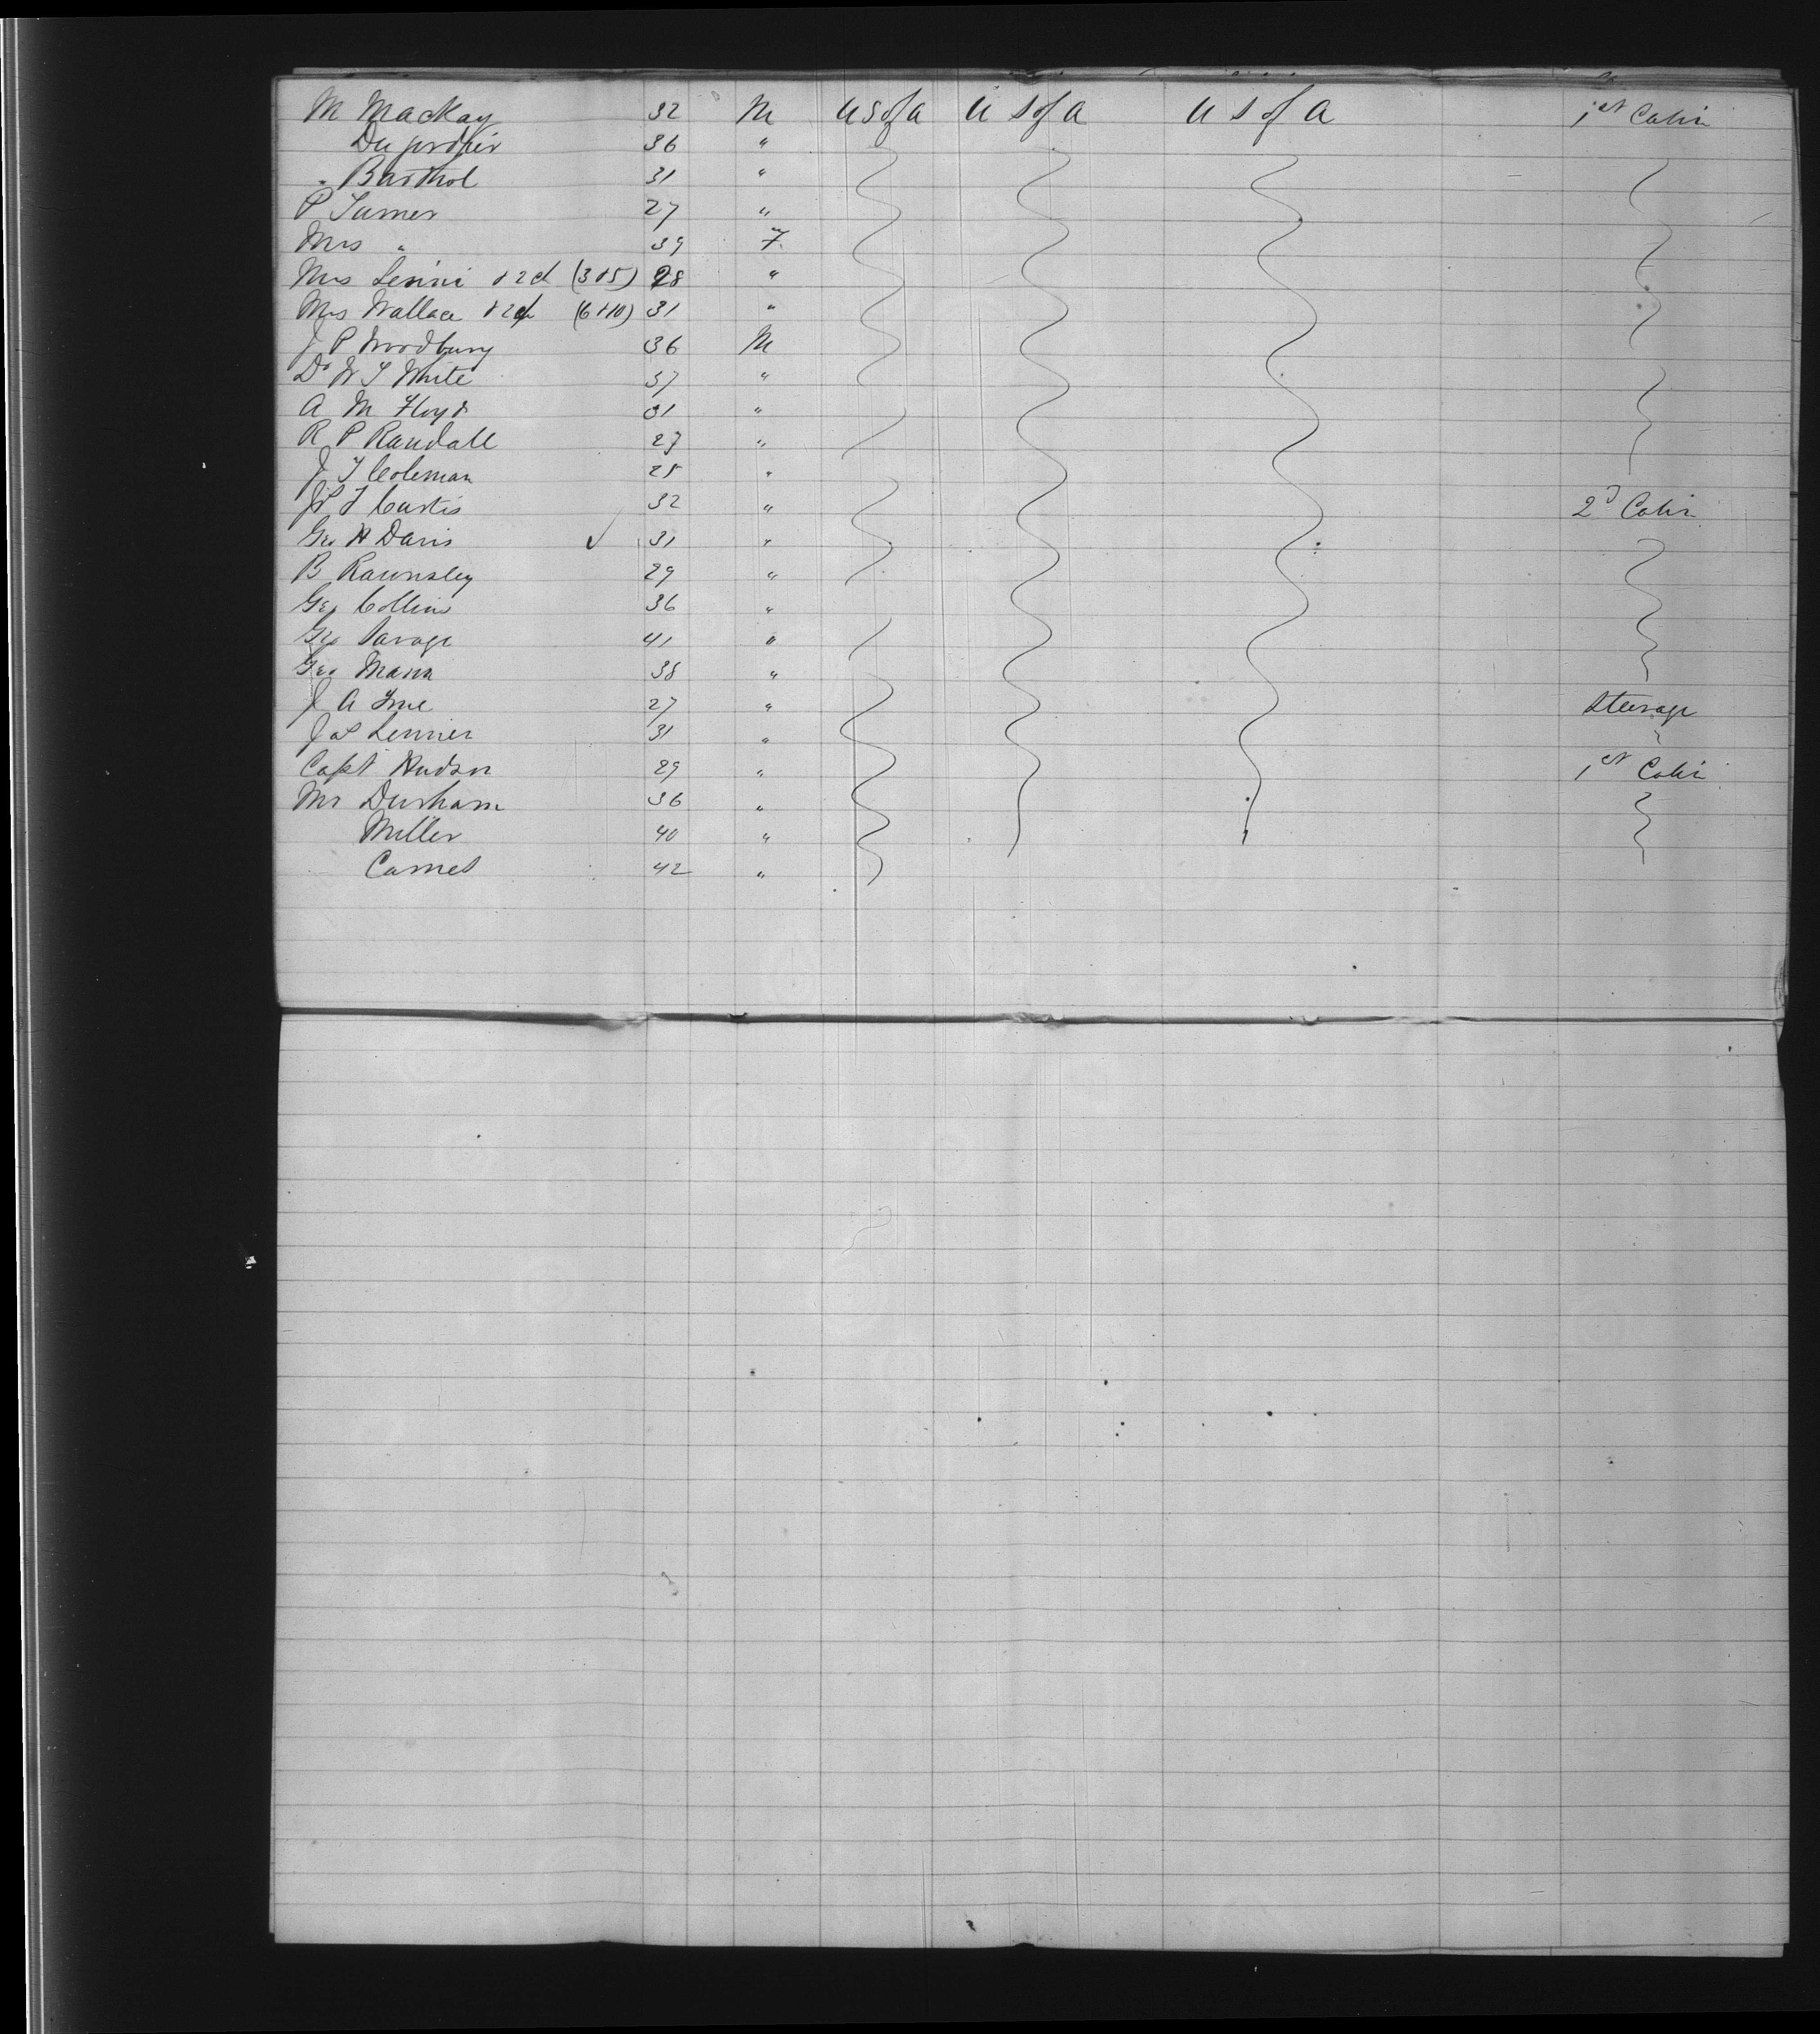 M Mackay 32 M U S of A U S of A U S of A 1st Cabin
36 "
" Barthol 31 "
P Turner 27 "
Mrs " 39 F
Mrs & 2 ch (3 & 5) 28 "
Mrs Wallace & 2 ch (6 & 10) 31 "
J P Woodbury 36 M
Dr W S White 37 "
A M Floyd 31 "
R P Randall 27 "
J T Coleman 25 "
Curtis 32 " 2d Cabin
Geo H Davis ✓ 31 "
B Rawnsley 29 "
Geo Collins 36 "
Geo Savage 41 "
Geo Mann 38 "
J A True 27 " Steerage
31 " "
Capt Hudson 29 " 1st Cabin
Mr Durham 36 "
Miller 40 "
42 "